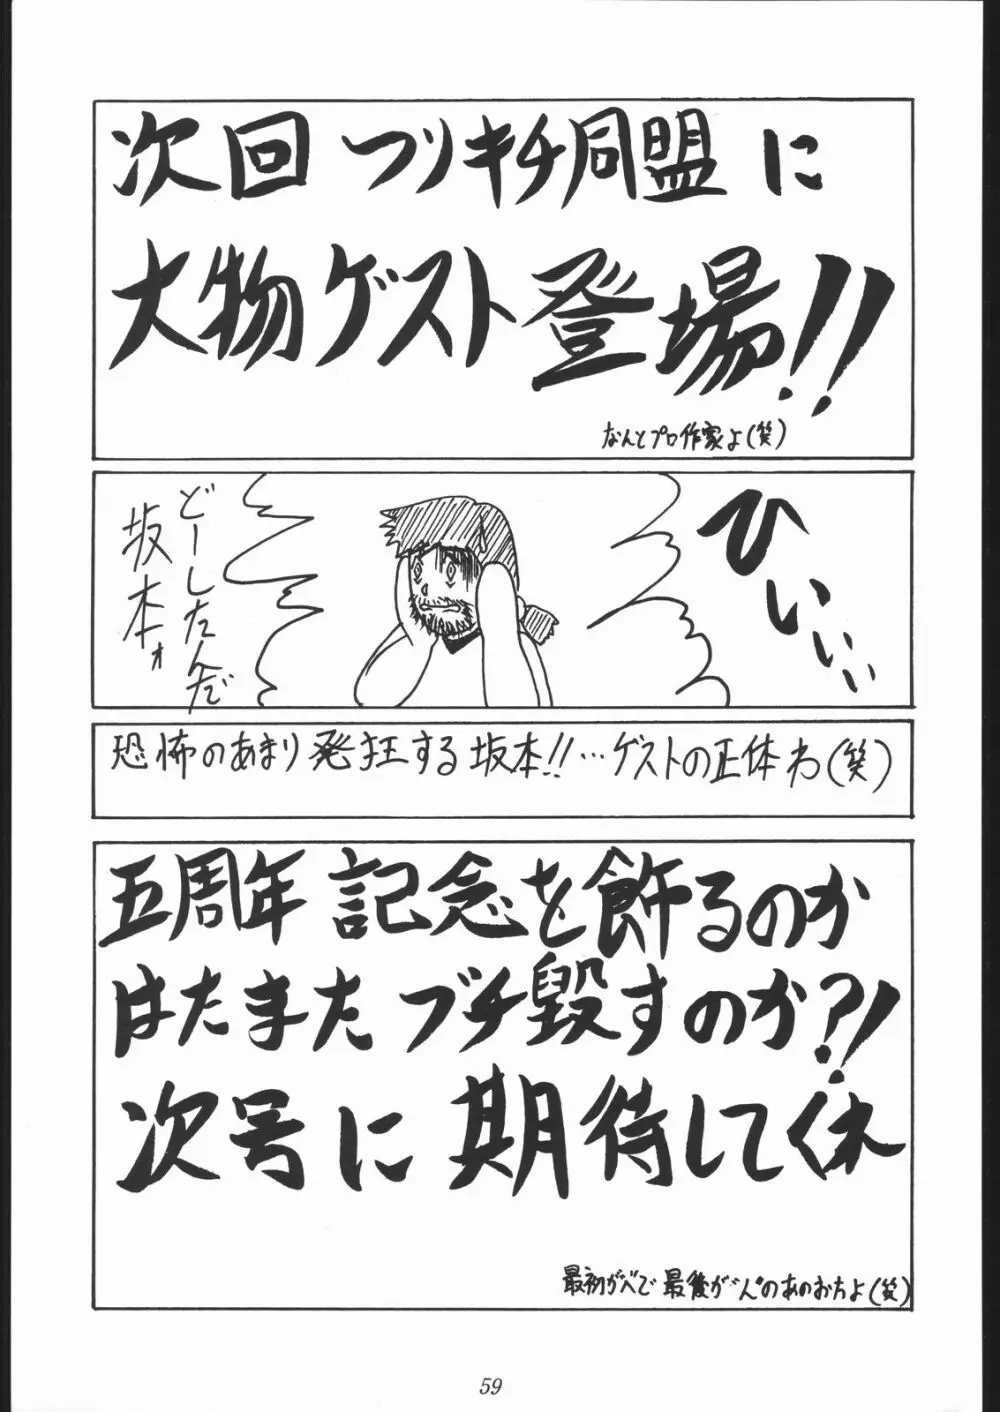 次回 つりキチ同盟 に
大物ゲスト登場!!
なんとプロ作家よ(笑)
ひぃぃぃぃ
どーしたんだ
坂本ォ
恐怖のあまり発狂する坂本!!…ゲストの正体わ(笑)
五周年 記念を飾るのか
はたまた ブチ毀すのか?!
次号に 期待してくれ
最初が“べ”で 最後が“ん”のあのおかたよ(笑)
59